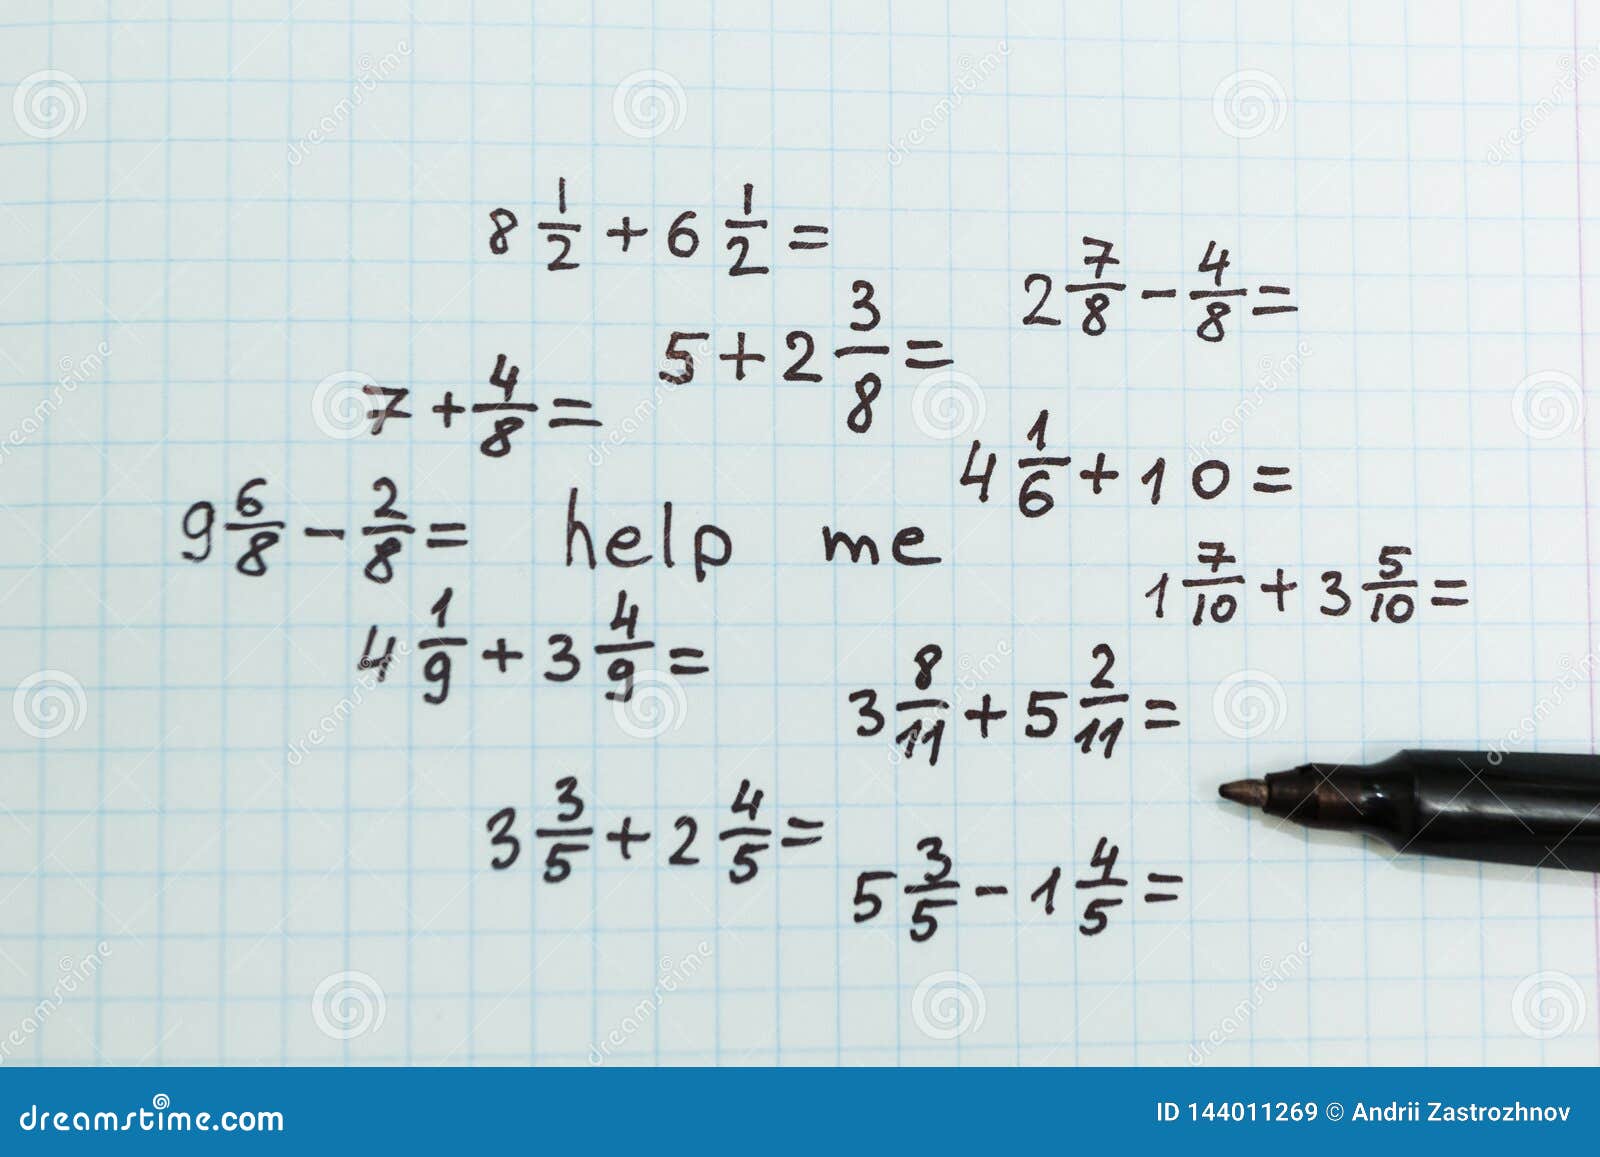 8 1/2 + 6 1/2 =
2 7/8 - 4/8 =
5 + 2 3/8 =
7 + 4/8 =
4 1/6 + 10 =
9 6/8 - 2/8 =
help me
1 7/10 + 3 5/10 =
4 1/9 + 3 4/9 =
3 8/11 + 5 2/11 =
3 3/5 + 2 4/5 =
5 3/5 - 1 4/5 =
dreamstime
dreamstime.com
ID 144011269 © Andrii Zastrozhnov